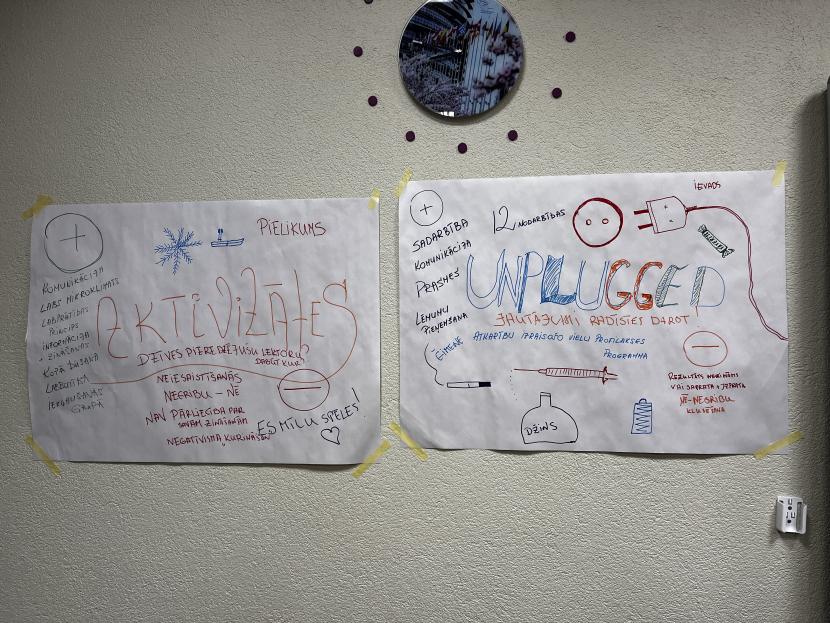 PIELIKUMS
KOMUNIKĀCIJA
LABS MIKROKLIMATS
LABPRĀTĪBAS
PRINCIPS
INFORMĀCIJA
+ ZINĀŠANAS
KOPĀ BŪŠANA
GRUPĀ
AKTIVIZĀTES
DZĪVES PIEREDZĒJUŠU LEKTORU?
DABŪT KUR?
NEIESAISTĪŠANĀS
NEGRIBU - NĒ
NAV PĀRLIECĪBA PAR
SAVĀM ZINĀŠANĀM
NEGATĪVISMA KURINĀŠANA
ES MĪLU SPĒLES!
IEVADS
12 NODARBĪBAS
SADARBĪBA
KOMUNIKĀCIJA
PRASMES
LĒMUMU
PIEŅEMŠANA
ĢIMENE
UNPLUGGED
JAUTĀJUMI RADĪSIES DAROT
ATKARĪBU IZRAISOŠO VIELU PROFILAKSES
PROGRAMMA
REZULTĀTS NEZINĀMS
VAI SAPRATA + IZPRATA
NĒ-NEGRIBU
KLUSĒŠANA
DŽINS